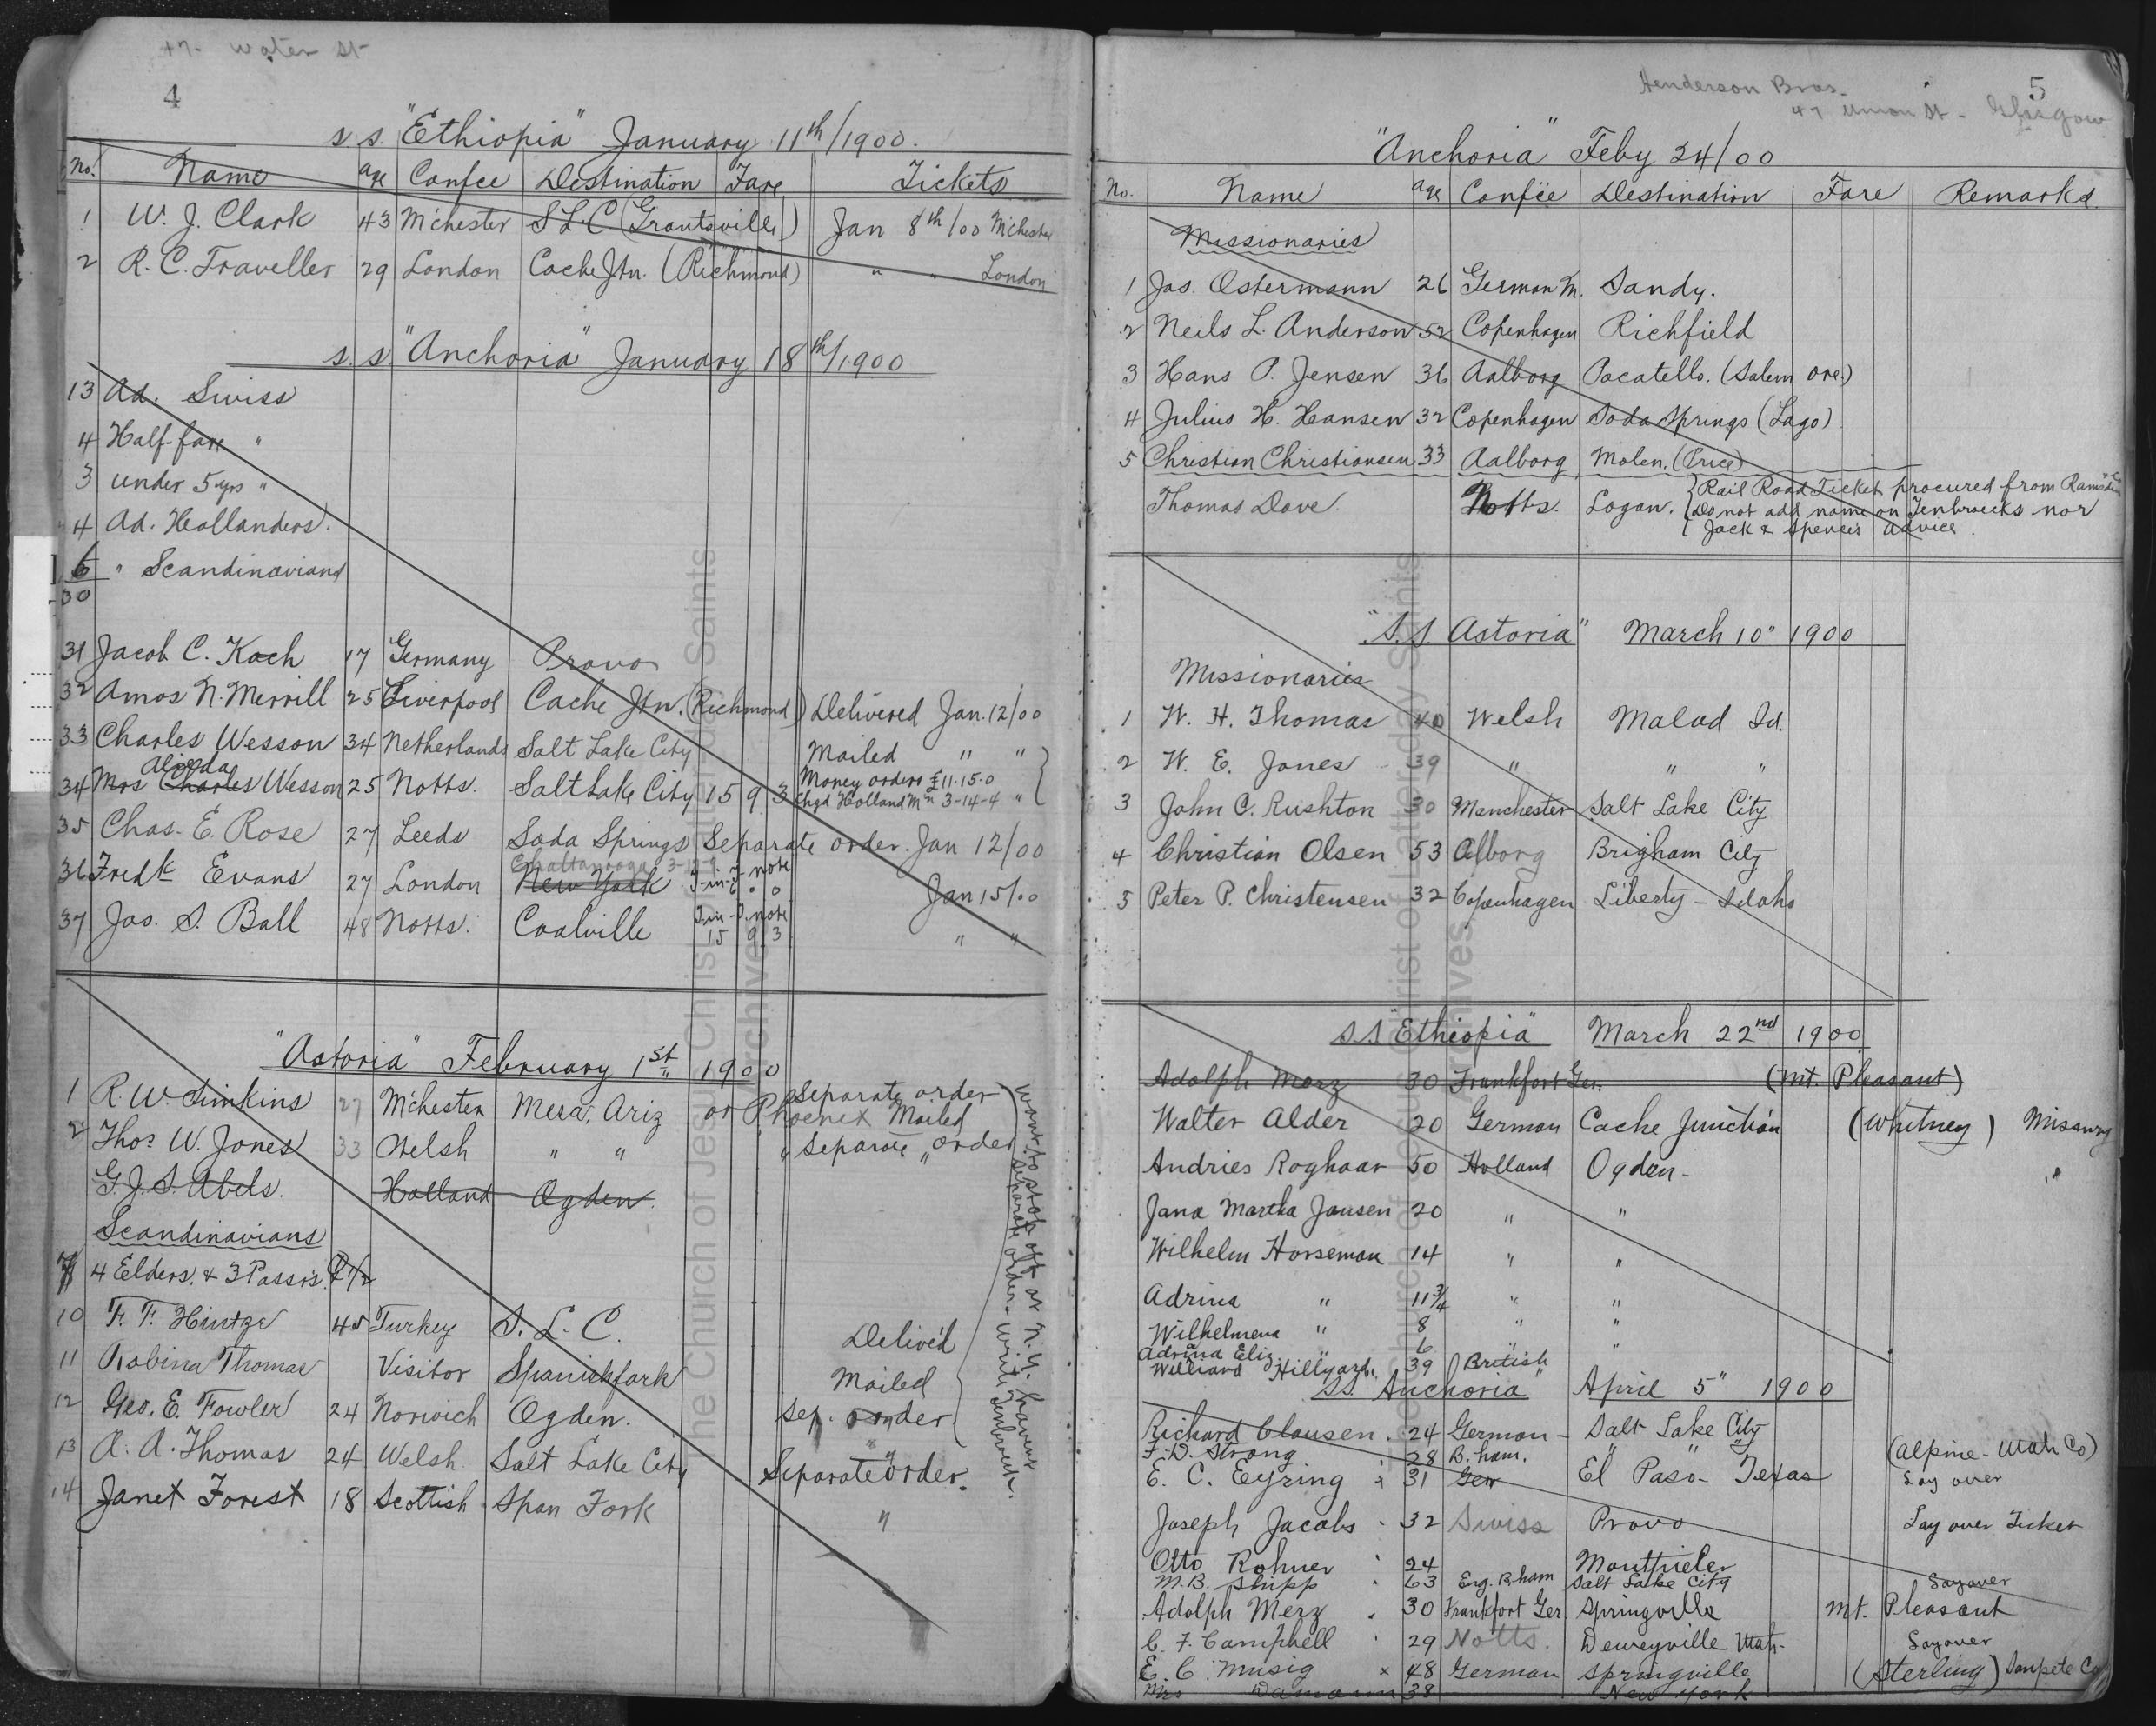 47- Water St
4
s.s. "Ethiopia" January 11th/1900.
No. Name age Confce Destination Fare Tickets
1 W. J. Clark 43 M'chester S L C (Grantsville) Jan 8th/00 M'chester
2 R. C. Traveller 29 London Cache Jtn. (Richmond) " " London
s.s. "Anchoria" January 18th/1900
13 Ad. Swiss
4 Half-fare "
3 under 5 yrs "
4 Ad. Hollanders.
6 " Scandinavians
30
31 Jacob C. Koch 17 Germany Provo
32 Amos N. Merrill 25 Liverpool Cache Jtn. (Richmond) Delivered Jan. 12/00
33 Charles Wesson 34 Netherlands Salt Lake City Mailed " "
34 Mrs Charles Wesson 25 Notts. Salt Lake City 15 9 3 Money orders £11-15-0
chgd Holland Mn 3-14-4 "
35 Chas. E. Rose 27 Leeds Soda Springs Separate order. Jan 12/00
Chattanooga 3-12-9
36 Fredk Evans 27 London New York 6 0 0 Jan 15/00
37 Jas. S. Ball 48 Notts. Coalville 15 9 3 " "
"Astoria" February 1st 1900
1 R. W. Simkins 27 M'chester Mesa, Ariz or Phoenix Separate order Mailed
2 Thos. W. Jones 33 Welsh " " " Separate " order
G. J. S. Abels. Holland Ogden.
Want to stop off at N.Y. having separate order. Write Tenbroeck.
Scandinavians
7 4 Elders. & 3 Pass'rs.
10 F. F. Hintze 45 Turkey S. L. C. Deliv'd
11 Robina Thomas Visitor Spanishfork Mailed
12 Geo. E. Fowler 24 Norwich Ogden. Sep. order
13 A. A. Thomas 24 Welsh Salt Lake City Separate order.
14 Janet Forest 18 Scottish Span Fork "
Henderson Bros.
47 Union St - Glasgow
5
"Anchoria" Feby 24/00
No. Name age Confce Destination Fare Remarks.
Missionaries
1 Jas. Ostermann 26 German M. Sandy.
2 Neils L. Anderson 52 Copenhagen Richfield
3 Hans P. Jensen 36 Aalborg Pocatello. (Salem Ore.)
4 Julius H. Hansen 32 Copenhagen Soda Springs (Lago)
5 Christian Christiansen 33 Aalborg Molen. (Price)
Thomas Dave. Notts. Logan. Rail Road Ticket procured from
Do not add name on Tenbroecks nor
Jack & Spencers advice
"S.S. Astoria" March 10" 1900
Missionaries
1 W. H. Thomas 40 Welsh Malad Id.
2 W. E. Jones 39 " " "
3 John C. Rushton 30 Manchester Salt Lake City
4 Christian Olsen 53 Alborg Brigham City
5 Peter P. Christensen 32 Copenhagen Liberty - Idaho
S S "Ethiopia" March 22nd 1900
Adolph Merz 30 Frankfort Ger. (Mt. Pleasant)
Walter Alder 20 German Cache Junction (Whitney) Missnry
Andries Roghaar 50 Holland Ogden - "
Jana Martha Jansen 20 " "
Wilhelm Horseman 14 " "
Adrina " 11 3/4 " "
Wilhelmena " 8 " "
Adrina Eliz. " 6 " "
Williard Hillyard. 39 British
SS "Anchoria" April 5" 1900
Richard Clausen. 24 German - Salt Lake City
F. D. Strong 28 B.ham. " " " (Alpine - Utah Co)
E. C. Eyring x 31 Ger El Paso - Texas Lay over
Joseph Jacobs 32 Swiss Provo Lay over Ticket
Otto Rohner 24 Montpieler
M. B. Shipp 63 Eng. B.ham Salt Lake City Layover
Adolph Merz 30 Frankfort Ger. Springville Mt. Pleasant
C. F. Campbell 29 Notts. Deweyville Utah - Layover
E. C. Musig x 48 German Springville (Sterling) Sanpete Co
Mrs Damaun 38 New York
The Church of Jesus Christ of Latter-day Saints
Archives
The Church of Jesus Christ of Latter-day Saints
Archives